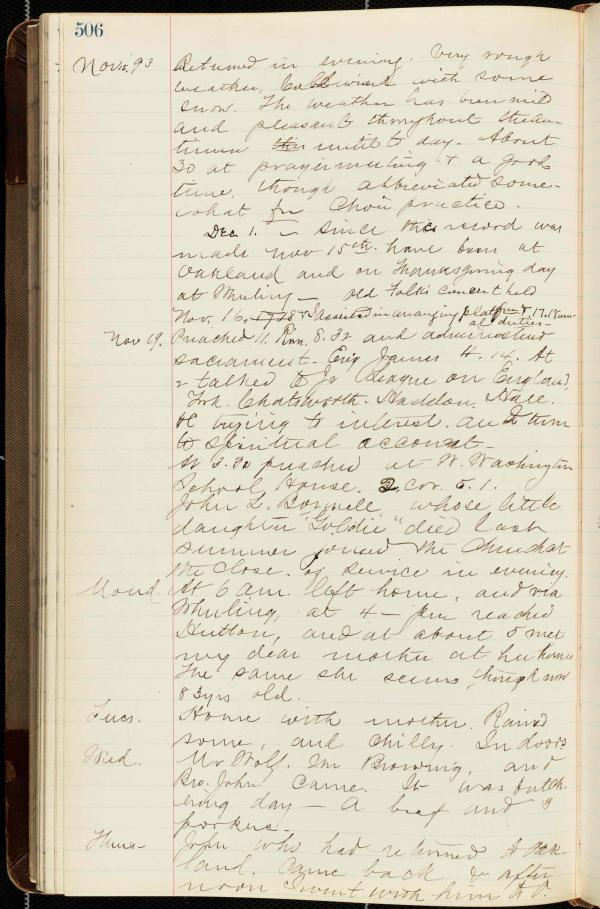 506
Nov 15. 93 Returned in evening. Very rough
weather, Cold wind with some
snow. The weather has been mild
and pleasant throughout the au-
tumn this until to day. About
30 at prayermeeting & a good
time, though abbreviated some-
what for Choir practice.
Dec 1. — Since this record was
made Nov 15th. have been at
Oakland and on Thanksgiving day
at Wheeling — Old Folks concert held
Nov. 16, 17 & I assisted in arranging platform &
al duties—
Nov 19. Preached 11. Rom. 8.32 and administered
sacrament. Evg James 4.14. At
2 talked to Jr League on England,
York. Chatsworth. Haddon Hall.
&c trying to interest and turn
to spiritual account—
At 3.30 preached at W. Washington
School House. 2 Cor. 5.1.
John L. whose little
daughter "Goldie" died last
summer joined the Church at
the close of service in evening.
Mond. At 6 am. left home, and via
Wheeling, at 4— pm reached
Hutton, and at about 5 met
my dear mother at her home
The same she seems, though now
83 yrs old.
Tues. Home with mother. Rained
some, and chilly. In doors
Wed. Mr Wolf. Wm Browning, and
Bro. John came. It was butch-
ering day — A beef and 3
porkers—
Thurs— John who had returned to Oak-
land. Came back & after
noon I went with him to O.